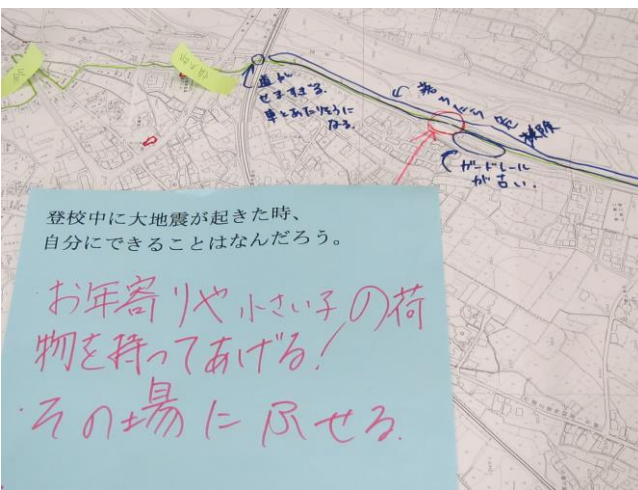 道が
せますぎる.
車とあたりそうに
なる.
ガードレール
が古い.
登校中に大地震が起きた時、
自分にできることはなんだろう。
・お年寄りや小さい子の荷
物を持ってあげる!
・その場にふせる.